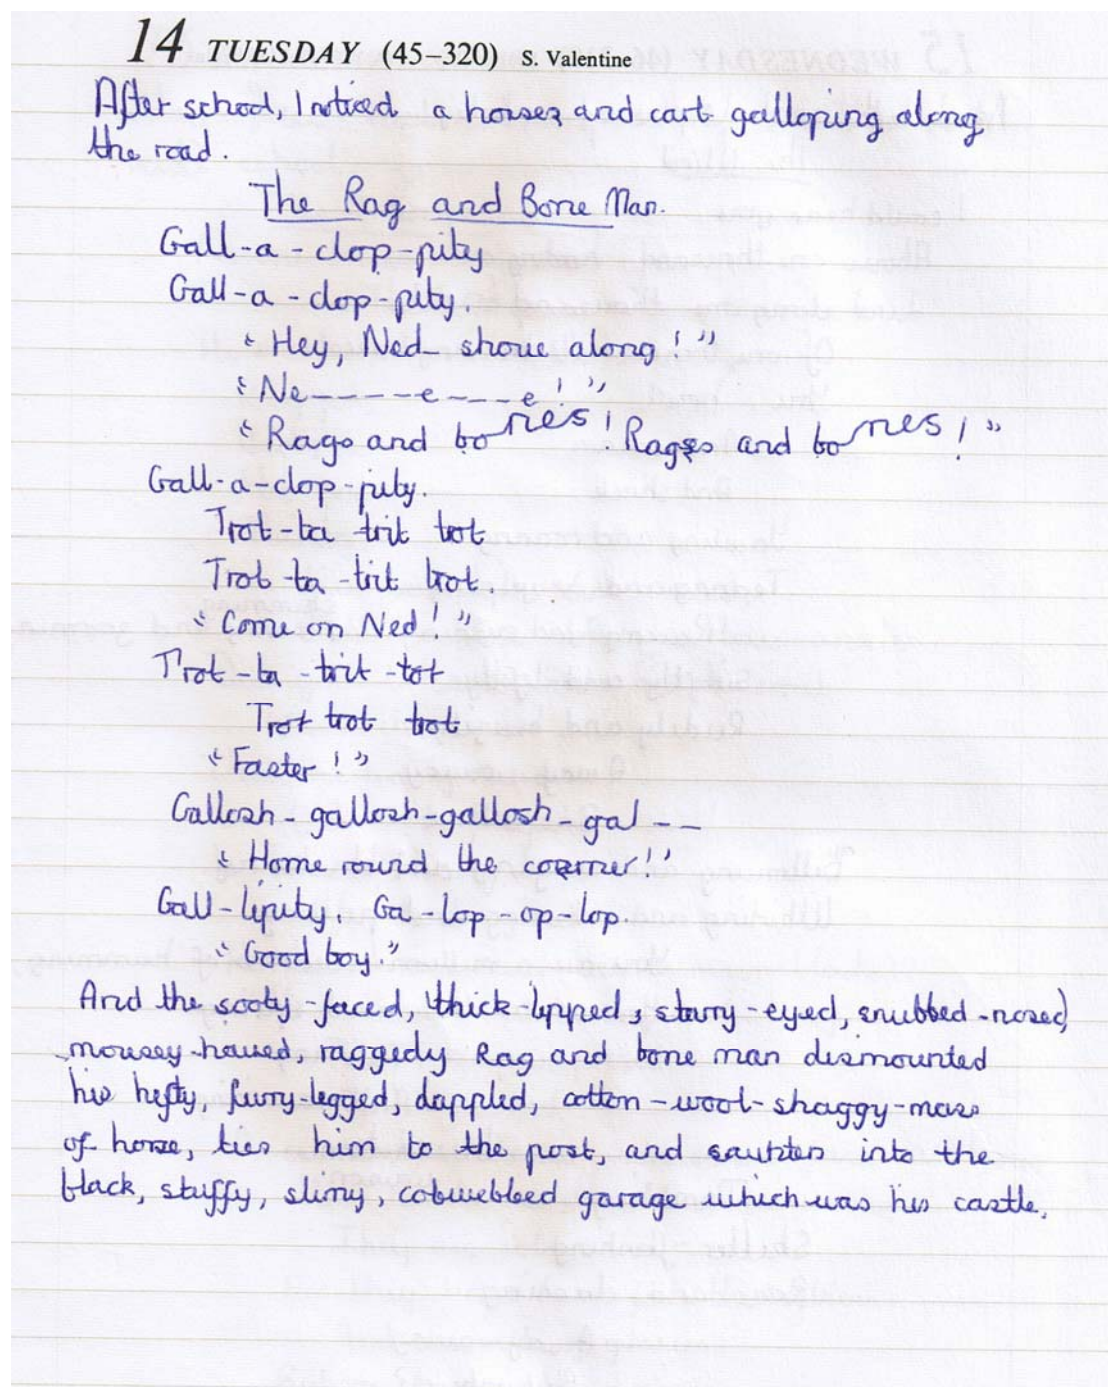 14 TUESDAY (45–320) S. Valentine
After school, I noticed a horse and cart galloping along
the road.
The Rag and Bone Man.
Gall-a-clop-pity
Gall-a-clop-pity.
"Hey, Ned shove along!"
"Ne-----e----e!"
"Rags and bones! Rags and bones!"
Gall-a-clop-pity.
Trot-ta trit trot
Trot-ta-trit trot.
"Come on Ned!"
Trot-ta-trit-tot
Trot trot trot
"Faster!"
Gallosh-gallosh-gallosh-gal--
"Home round the corner!"
Gall-lipity. Ga-lop-op-lop.
"Good boy."
And the sooty-faced, thick-lipped, starry-eyed, snubbed-nosed,
mousey-haired, raggedy Rag and bone man dismounted
his hefty, furry-legged, dappled, cotton-wool-shaggy-mass
of horse, ties him to the post, and saunters into the
black, stuffy, slimy, cobwebbed garage which was his castle.